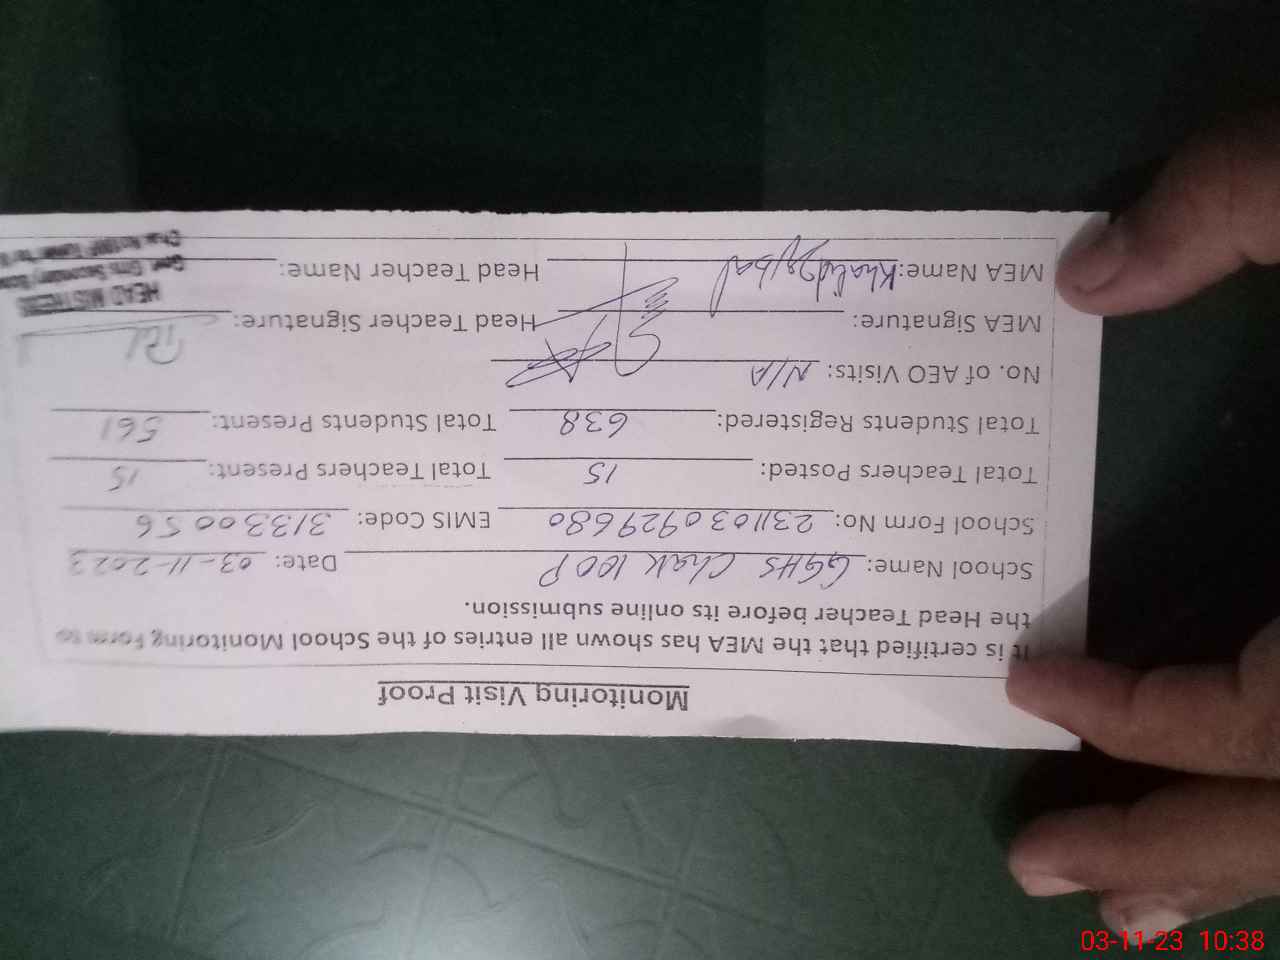 Monitoring Visit Proof
It is certified that the MEA has shown all entries of the School Monitoring Form to
the Head Teacher before its online submission.
School Name: GGHS Chak 100P Date: 03-11-2023
School Form No: 231103092968 0 EMIS Code: 31330056
Total Teachers Posted: 15 Total Teachers Present: 15
Total Students Registered: 638 Total Students Present: 561
No. of AEO Visits: N/A
MEA Signature: Head Teacher Signature:
HEAD MISTRESS
MEA Name: Khalid Iqbal Head Teacher Name:
Govt. Girls Secondary School
03-11-23 10:38